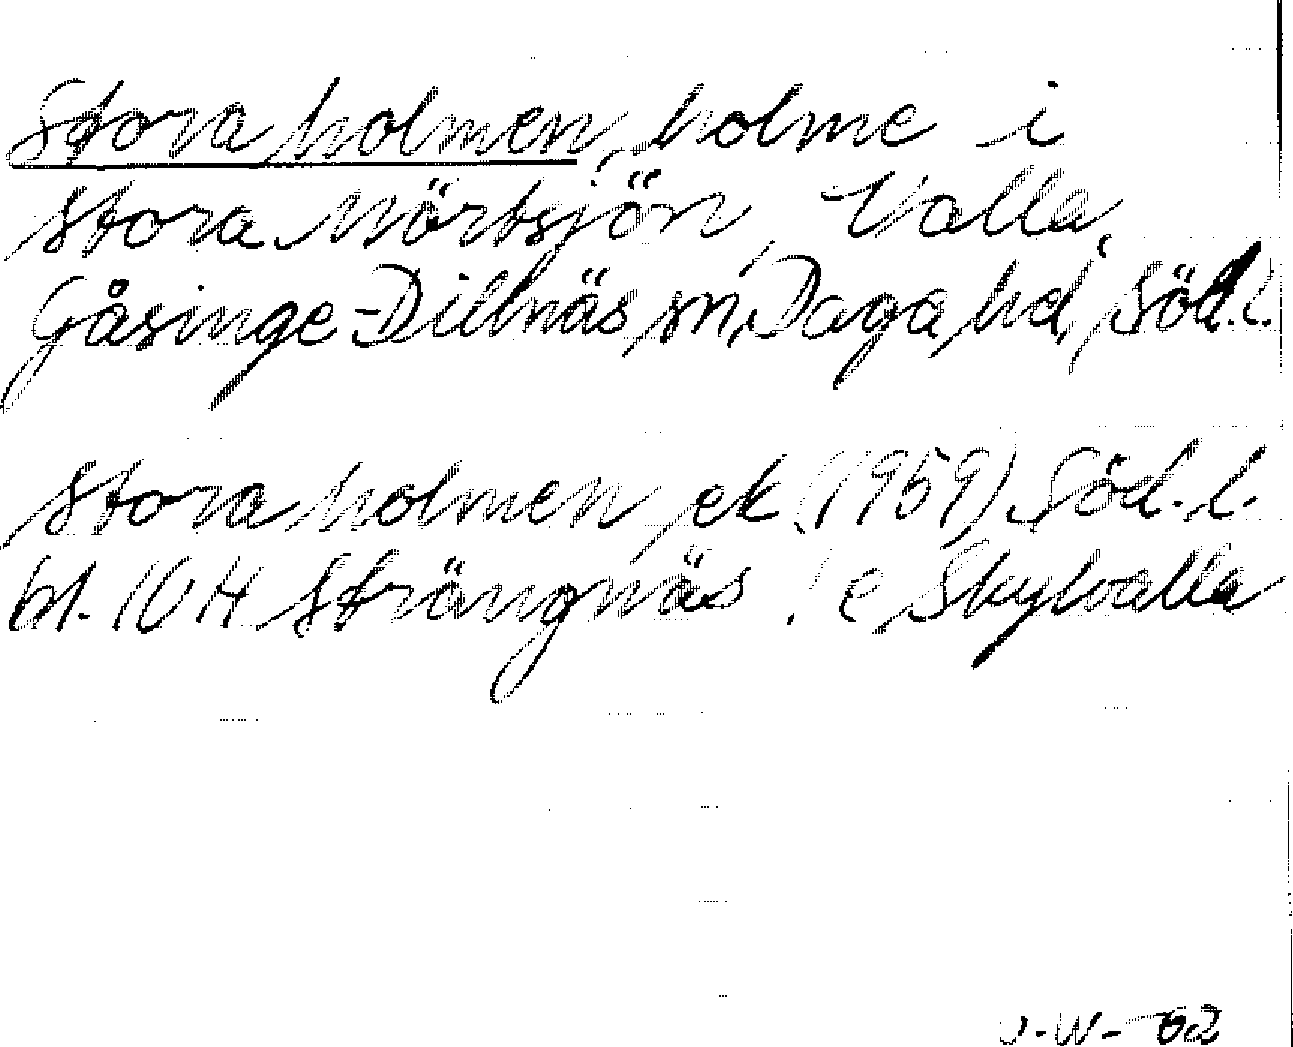 Stora holmen, holme i
Stora Mörtsjön, Valla,
Gåsinge-Dillnäs sn, Daga hd, Söd.l.
Stora holmen ek (1959) Söd. l.
bl. 10 H Strängnäs
J-W- 62